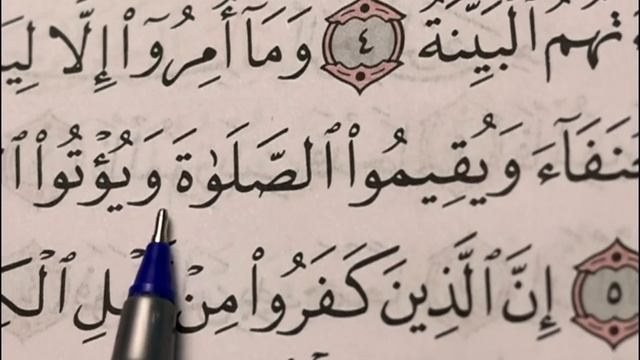 تْهُمُ ٱلْبَيِّنَةُ ٤ وَمَآ أُمِرُوٓا۟ إِلَّا لِيَ
نَفَآءَ وَيُقِيمُوا۟ ٱلصَّلَوٰةَ وَيُؤْتُوا۟ ٱ
٥ إِنَّ ٱلَّذِينَ كَفَرُوا۟ مِنْ هْلِ ٱلْكِ